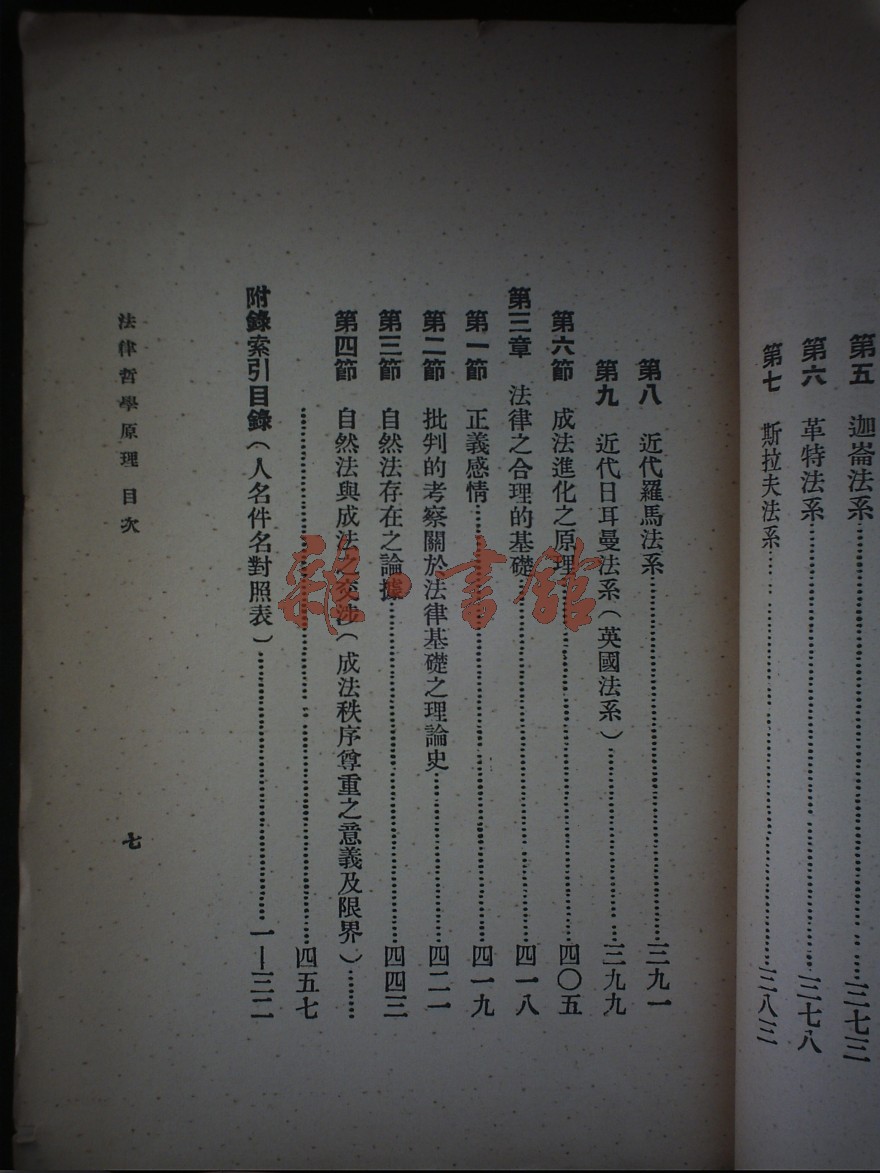 第五　迦崙法系……三七三
第六　革特法系……三七八
第七　斯拉夫法系……三八三
第八　近代羅馬法系……三九一
第九　近代日耳曼法系（英國法系）……三九九
第六節　成法進化之原理……四〇五
第三章　法律之合理的基礎……四一八
第一節　正義感情……四一九
第二節　批判的考察關於法律基礎之理論史……四二一
第三節　自然法存在之論據……四四三
第四節　自然法與成法之交涉（成法秩序尊重之意義及限界）……
……四五七
附錄索引目錄（人名件名對照表）……一—三二
法律哲學原理 目次
七
雜·書館